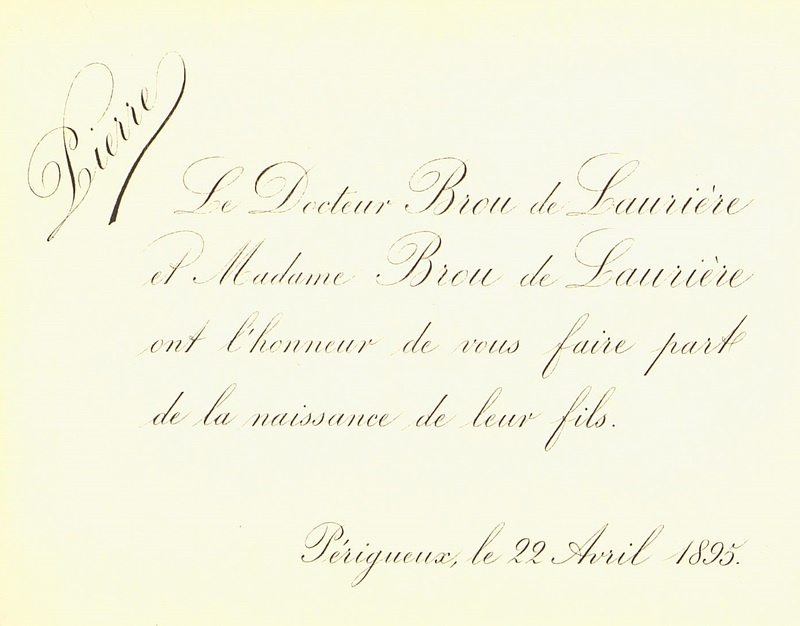 Pierre
Le Docteur Brou de Laurière
et Madame Brou de Laurière
ont l'honneur de vous faire part
de la naissance de leur fils.
Périgueux, le 22 Avril 1895.